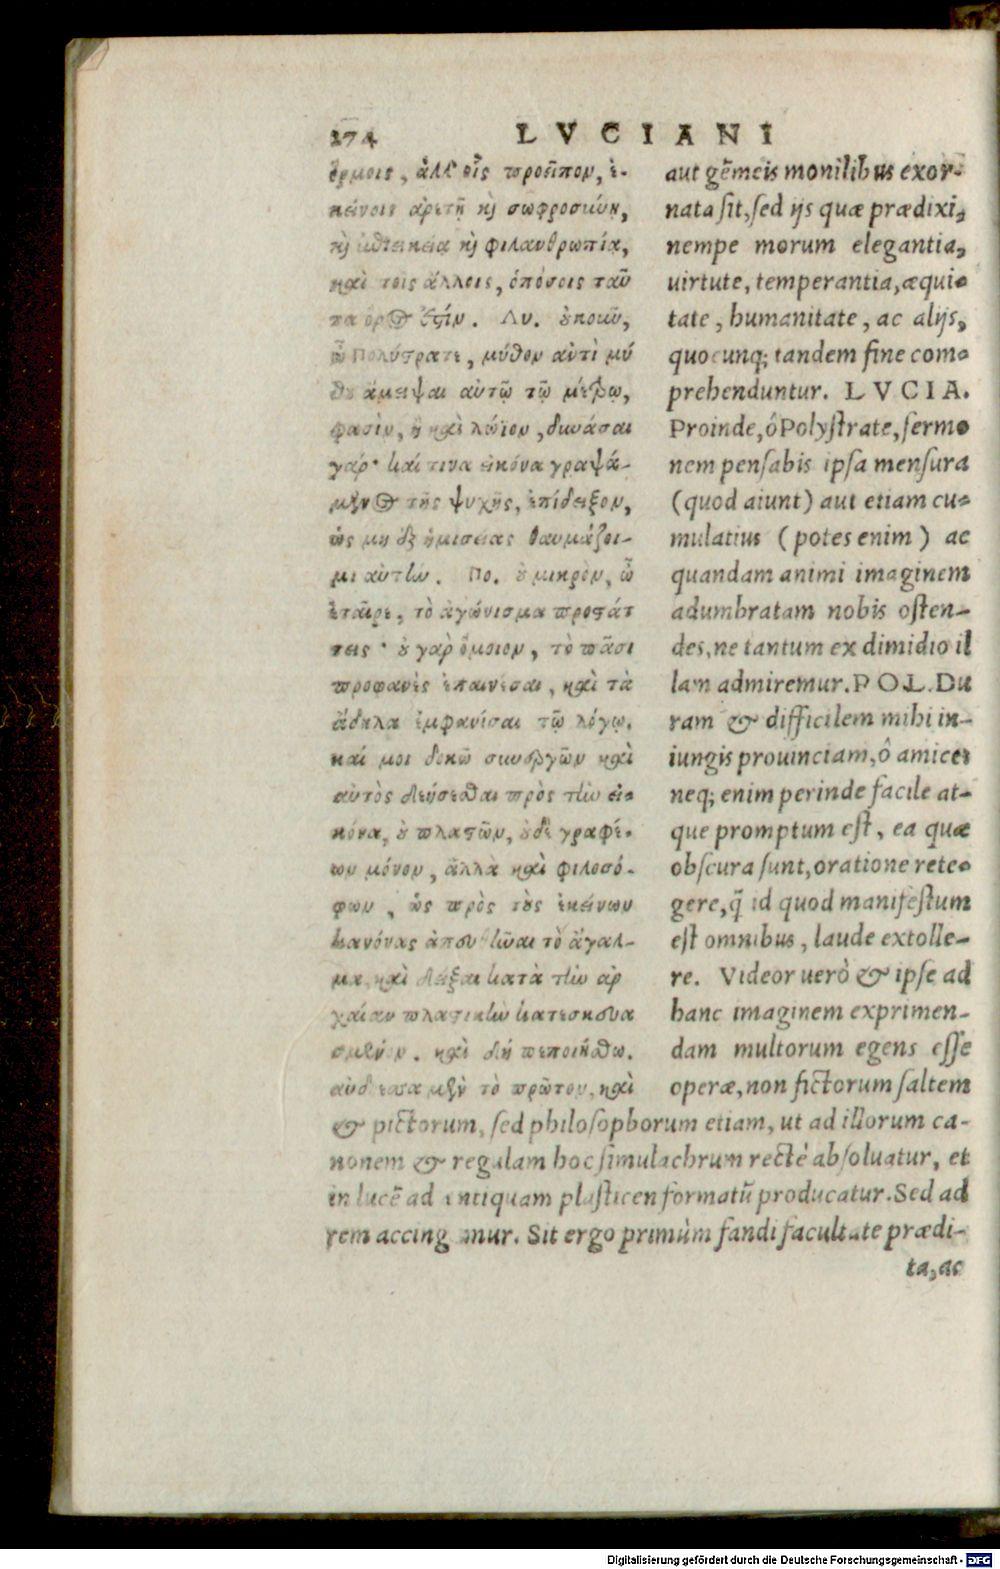 274 LVCIANI
ὅρμοις, ἀλλ' οἷς προεῖπον, ἐ-
κείνοις ἀρετῇ καὶ σωφροσύνῃ,
καὶ ἐπιεικείᾳ καὶ φιλανθρωπίᾳ,
καὶ τοῖς ἄλλοις, ὁπόσοις ταύ
της ὅρος ἐστίν. Λυ. οὐκοῦν,
ὦ Πολύστρατε, μῦθον ἀντὶ μύ
θου ἄμειψαι αὐτῷ τῷ μέτρῳ,
φασὶν, ἢ καὶ λώϊον, δύνασαι
γάρ· καί τινα εἰκόνα γραψά-
μενος τῆς ψυχῆς, ἐπίδειξον,
ὡς μὴ ἐξ ἡμισείας θαυμάζοι-
μι αὐτήν. Πο. οὐ μικρὸν, ὦ
ἑταῖρε, τὸ ἀγώνισμα προστάτ
τεις· οὐ γὰρ ὅμοιον, τὸ πᾶσι
προφανὲς ἐπαινέσαι, καὶ τὰ
ἄδηλα ἐμφανίσαι τῷ λόγῳ.
καί μοι δοκῶ συνεργῶν καὶ
αὐτὸς δεήσεσθαι πρὸς τὴν εἰ-
κόνα, οὐ πλαστῶν, οὐδὲ γραφέ-
ων μόνον, ἀλλὰ καὶ φιλοσό-
φων, ὡς πρὸς τοὺς ἐκείνων
κανόνας ἀπευθῦναι τὸ ἄγαλ-
μα, καὶ δεῖξαι κατὰ τὴν ἀρ
χαίαν πλαστικὴν κατεσκευα
σμένον. καὶ δὴ πεποιήσθω.
αὐδήεσσα μὲν τὸ πρῶτον, καὶ
aut gēmeis monilibus exor-
nata sit, sed ijs quæ prædixi,
nempe morum elegantia,
uirtute, temperantia, æqui-
tate, humanitate, ac alijs,
quocunq; tandem fine com-
prehenduntur. LVCIA.
Proinde, ô Polystrate, sermo
nem pensabis ipsa mensura
(quod aiunt) aut etiam cu-
mulatius (potes enim) ac
quandam animi imaginem
adumbratam nobis osten-
des, ne tantum ex dimidio il
lam admiremur. POL. Du
ram & difficilem mihi in-
iungis prouinciam, ô amice:
neq; enim perinde facile at-
que promptum est, ea quæ
obscura sunt, oratione rete-
gere, q̃ id quod manifestum
est omnibus, laude extolle-
re. Videor uerò & ipse ad
hanc imaginem exprimen-
dam multorum egens esse
operæ, non fictorum saltem
& pictorum, sed philosophorum etiam, ut ad illorum ca-
nonem & regulam hoc simulachrum rectè absoluatur, et
in lucē ad antiquam plasticen formatū producatur. Sed ad
rem accingamur. Sit ergo primùm fandi facultate prædi-
ta, ac
Digitalisierung gefördert durch die Deutsche Forschungsgemeinschaft - DFG